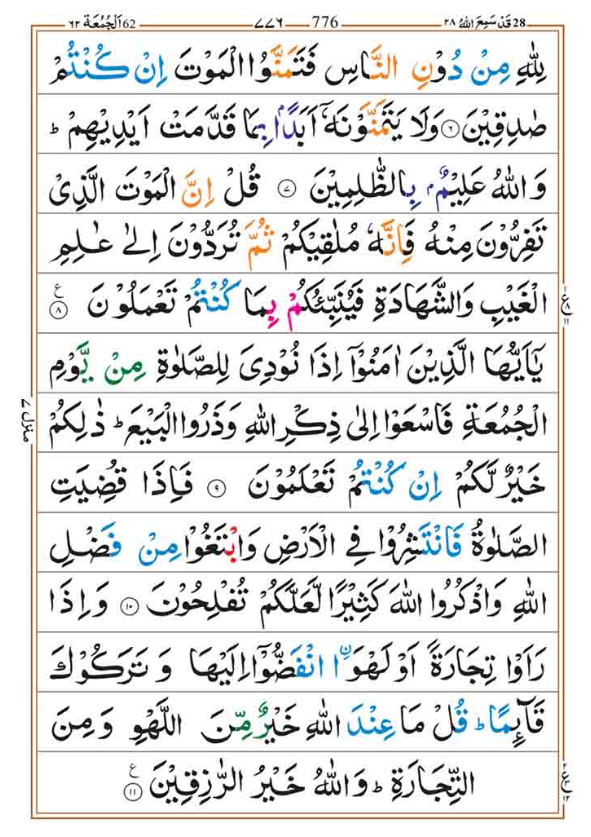 28 قَدْ سَمِعَ اللّٰهُ ٢٨ 776 ٧٧٦ 62 اَلْجُمُعَة ٦٢
لِلّٰهِ مِنْ دُوْنِ النَّاسِ فَتَمَنَّوُا الْمَوْتَ اِنْ كُنْتُمْ
صٰدِقِيْنَ ۝٦ وَلَا يَتَمَنَّوْنَهٗۤ اَبَدًۢا بِمَا قَدَّمَتْ اَيْدِيْهِمْ ؕ
وَاللّٰهُ عَلِيْمٌۢ بِالظّٰلِمِيْنَ ۝٧ قُلْ اِنَّ الْمَوْتَ الَّذِىْ
تَفِرُّوْنَ مِنْهُ فَاِنَّهٗ مُلٰقِيْكُمْ ثُمَّ تُرَدُّوْنَ اِلٰى عٰلِمِ
الْغَيْبِ وَالشَّهَادَةِ فَيُنَبِّئُكُمْ بِمَا كُنْتُمْ تَعْمَلُوْنَ ۝٨ ع
يٰۤاَيُّهَا الَّذِيْنَ اٰمَنُوْۤا اِذَا نُوْدِىَ لِلصَّلٰوةِ مِنْ يَّوْمِ
الْجُمُعَةِ فَاسْعَوْا اِلٰى ذِكْرِ اللّٰهِ وَذَرُوا الْبَيْعَ ؕ ذٰلِكُمْ
خَيْرٌ لَّكُمْ اِنْ كُنْتُمْ تَعْلَمُوْنَ ۝٩ فَاِذَا قُضِيَتِ
الصَّلٰوةُ فَانْتَشِرُوْا فِى الْاَرْضِ وَابْتَغُوْا مِنْ فَضْلِ
اللّٰهِ وَاذْكُرُوا اللّٰهَ كَثِيْرًا لَّعَلَّكُمْ تُفْلِحُوْنَ ۝١٠ وَاِذَا
رَاَوْا تِجَارَةً اَوْ لَهْوَا ۟انْفَضُّوْۤا اِلَيْهَا وَتَرَكُوْكَ
قَآئِمًا ؕ قُلْ مَا عِنْدَ اللّٰهِ خَيْرٌ مِّنَ اللَّهْوِ وَمِنَ
التِّجَارَةِ ؕ وَاللّٰهُ خَيْرُ الرّٰزِقِيْنَ ۝١١ ع
منزل ٧